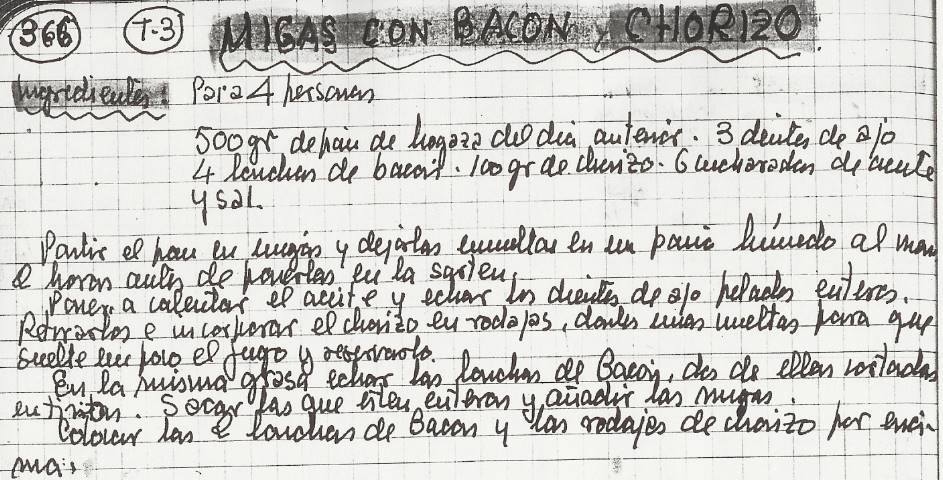 366 T-3 MIGAS CON BACON Y CHORIZO
Ingredientes: Para 4 personas
500 gr de pan de hogaza del dia anterior. 3 dientes de ajo
4 lonchas de bacon. 100 gr de chorizo. 6 cucharadas de aceite
y sal.
Partir el pan en migas y dejarlas envueltas en un paño húmedo al menos
2 horas antes de ponerlas en la sarten.
Poner a calentar el aceite y echar los dientes de ajo pelados enteros.
Retirarlos e incorporar el chorizo en rodajas, darles unas vueltas para que
suelte un poco el jugo y reservarlo.
En la misma grasa echar las lonchas de Bacon, dos de ellas cortadas
en tiritas. Sacar las que esten enteras y añadir las migas.
Colocar las 2 lonchas de Bacon y las rodajas de chorizo por enci-
ma.